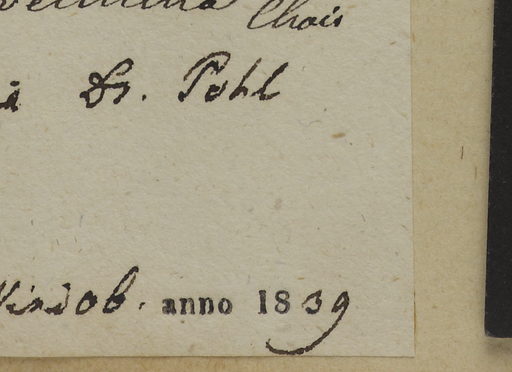 Chois
Dr. Pohl
Vindob. anno 1839